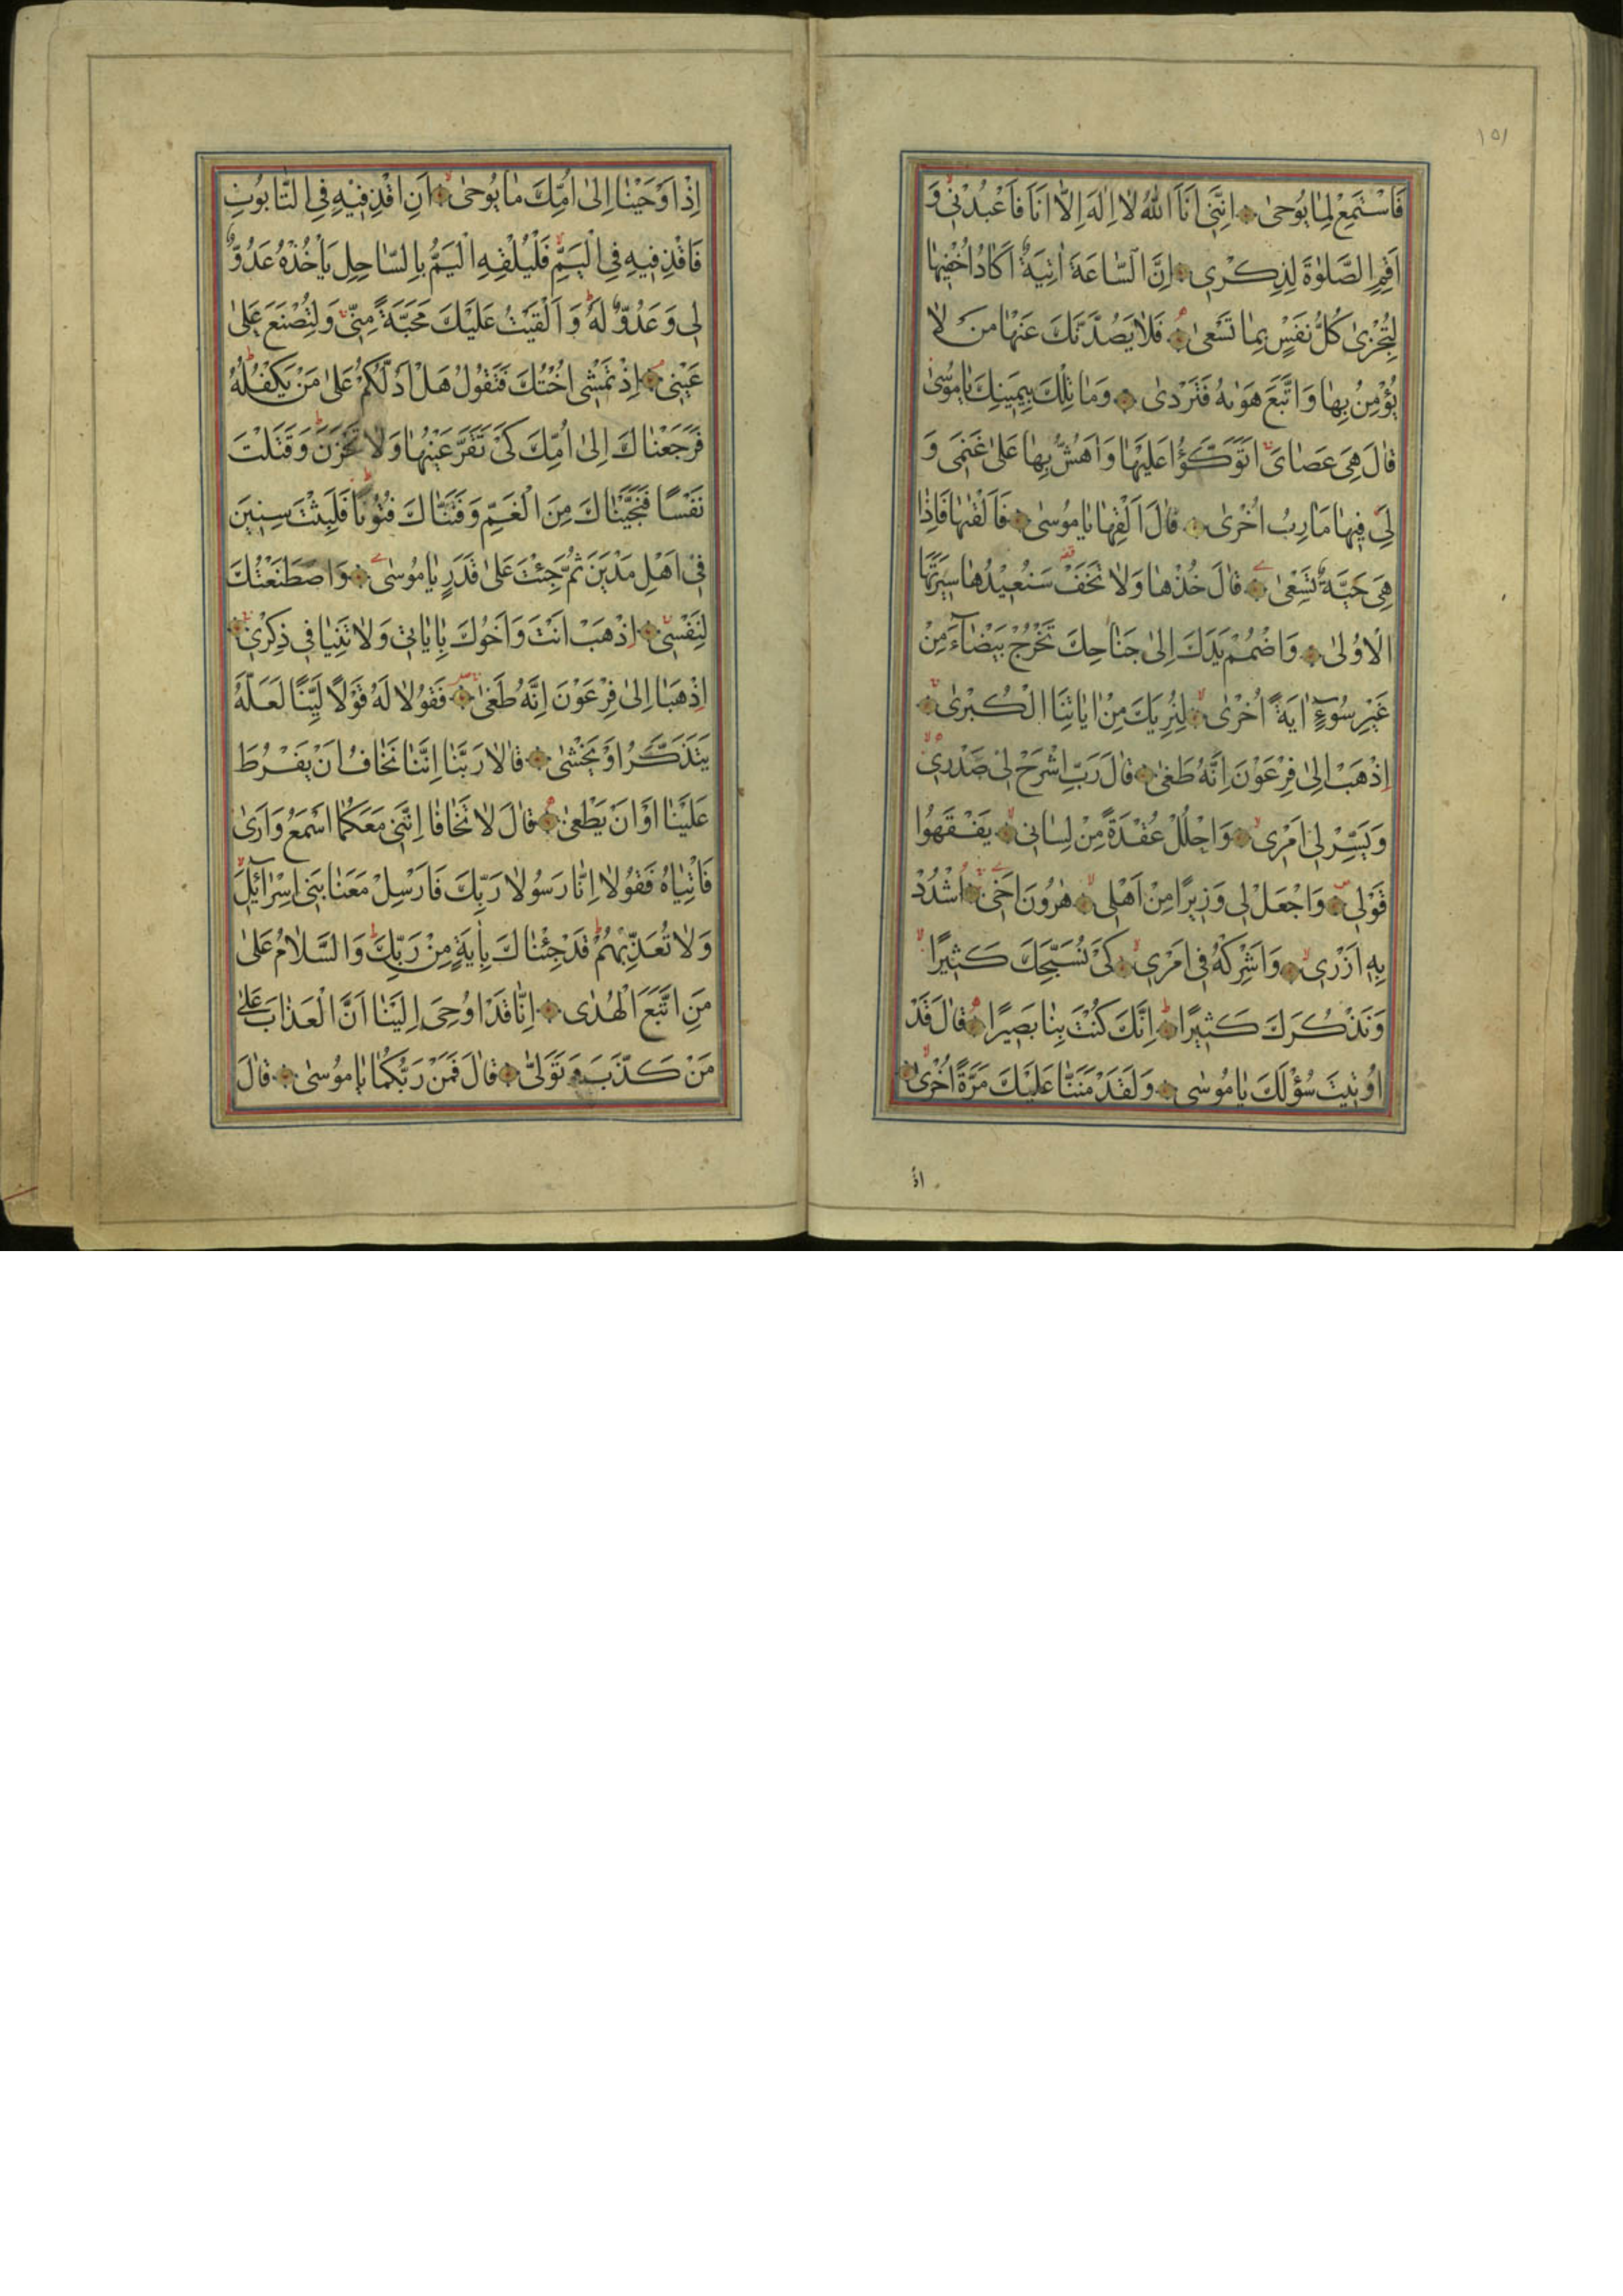 ١٥١
فَاسْتَمِعْ لِمَا يُوحٰى اِنَّنِي اَنَا اللّٰهُ لَا اِلٰهَ اِلَّا اَنَا فَاعْبُدْنِي وَ
اَقِمِ الصَّلٰوةَ لِذِكْرِي اِنَّ السَّاعَةَ اٰتِيَةٌ اَكَادُ اُخْفِيهَا
لِتُجْزٰى كُلُّ نَفْسٍ بِمَا تَسْعٰى فَلَا يَصُدَّنَّكَ عَنْهَا مَنْ لَا
يُؤْمِنُ بِهَا وَاتَّبَعَ هَوٰيهُ فَتَرْدٰى وَمَا تِلْكَ بِيَمِينِكَ يَا مُوسٰى
قَالَ هِيَ عَصَايَ اَتَوَكَّؤُا عَلَيْهَا وَاَهُشُّ بِهَا عَلٰى غَنَمِي وَ
لِيَ فِيهَا مَاٰرِبُ اُخْرٰى قَالَ اَلْقِهَا يَا مُوسٰى فَاَلْقٰيهَا فَاِذَا
هِيَ حَيَّةٌ تَسْعٰى قَالَ خُذْهَا وَلَا تَخَفْ سَنُعِيدُهَا سِيرَتَهَا
الْاُولٰى وَاضْمُمْ يَدَكَ اِلٰى جَنَاحِكَ تَخْرُجْ بَيْضَاءَ مِنْ
غَيْرِ سُوءٍ اٰيَةً اُخْرٰى لِنُرِيَكَ مِنْ اٰيَاتِنَا الْكُبْرٰى
اِذْهَبْ اِلٰى فِرْعَوْنَ اِنَّهُ طَغٰى قَالَ رَبِّ اشْرَحْ لِي صَدْرِي
وَيَسِّرْ لِي اَمْرِي وَاحْلُلْ عُقْدَةً مِنْ لِسَانِي يَفْقَهُوا
قَوْلِي وَاجْعَلْ لِي وَزِيرًا مِنْ اَهْلِي هٰرُونَ اَخِي اُشْدُدْ
بِهِ اَزْرِي وَاَشْرِكْهُ فِي اَمْرِي كَيْ نُسَبِّحَكَ كَثِيرًا
وَنَذْكُرَكَ كَثِيرًا اِنَّكَ كُنْتَ بِنَا بَصِيرًا قَالَ قَدْ
اُوتِيتَ سُؤْلَكَ يَا مُوسٰى وَلَقَدْ مَنَنَّا عَلَيْكَ مَرَّةً اُخْرٰى
اِذْ
اِذْ اَوْحَيْنَا اِلٰى اُمِّكَ مَا يُوحٰى اَنِ اقْذِفِيهِ فِي التَّابُوتِ
فَاقْذِفِيهِ فِي الْيَمِّ فَلْيُلْقِهِ الْيَمُّ بِالسَّاحِلِ يَاْخُذْهُ عَدُوٌّ
لِي وَعَدُوٌّ لَهُ وَاَلْقَيْتُ عَلَيْكَ مَحَبَّةً مِنِّي وَلِتُصْنَعَ عَلٰى
عَيْنِي اِذْ تَمْشِي اُخْتُكَ فَتَقُولُ هَلْ اَدُلُّكُمْ عَلٰى مَنْ يَكْفُلُهُ
فَرَجَعْنَاكَ اِلٰى اُمِّكَ كَيْ تَقَرَّ عَيْنُهَا وَلَا تَحْزَنَ وَقَتَلْتَ
نَفْسًا فَنَجَّيْنَاكَ مِنَ الْغَمِّ وَفَتَنَّاكَ فُتُونًا فَلَبِثْتَ سِنِينَ
فِي اَهْلِ مَدْيَنَ ثُمَّ جِئْتَ عَلٰى قَدَرٍ يَا مُوسٰى وَاصْطَنَعْتُكَ
لِنَفْسِي اِذْهَبْ اَنْتَ وَاَخُوكَ بِاٰيَاتِي وَلَا تَنِيَا فِي ذِكْرِي
اِذْهَبَا اِلٰى فِرْعَوْنَ اِنَّهُ طَغٰى فَقُولَا لَهُ قَوْلًا لَيِّنًا لَعَلَّهُ
يَتَذَكَّرُ اَوْ يَخْشٰى قَالَا رَبَّنَا اِنَّنَا نَخَافُ اَنْ يَفْرُطَ
عَلَيْنَا اَوْ اَنْ يَطْغٰى قَالَ لَا تَخَافَا اِنَّنِي مَعَكُمَا اَسْمَعُ وَاَرٰى
فَاْتِيَاهُ فَقُولَا اِنَّا رَسُولَا رَبِّكَ فَاَرْسِلْ مَعَنَا بَنِي اِسْرَائِيلَ
وَلَا تُعَذِّبْهُمْ قَدْ جِئْنَاكَ بِاٰيَةٍ مِنْ رَبِّكَ وَالسَّلَامُ عَلٰى
مَنِ اتَّبَعَ الْهُدٰى اِنَّا قَدْ اُوحِيَ اِلَيْنَا اَنَّ الْعَذَابَ عَلٰى
مَنْ كَذَّبَ وَتَوَلّٰى قَالَ فَمَنْ رَبُّكُمَا يَا مُوسٰى قَالَ